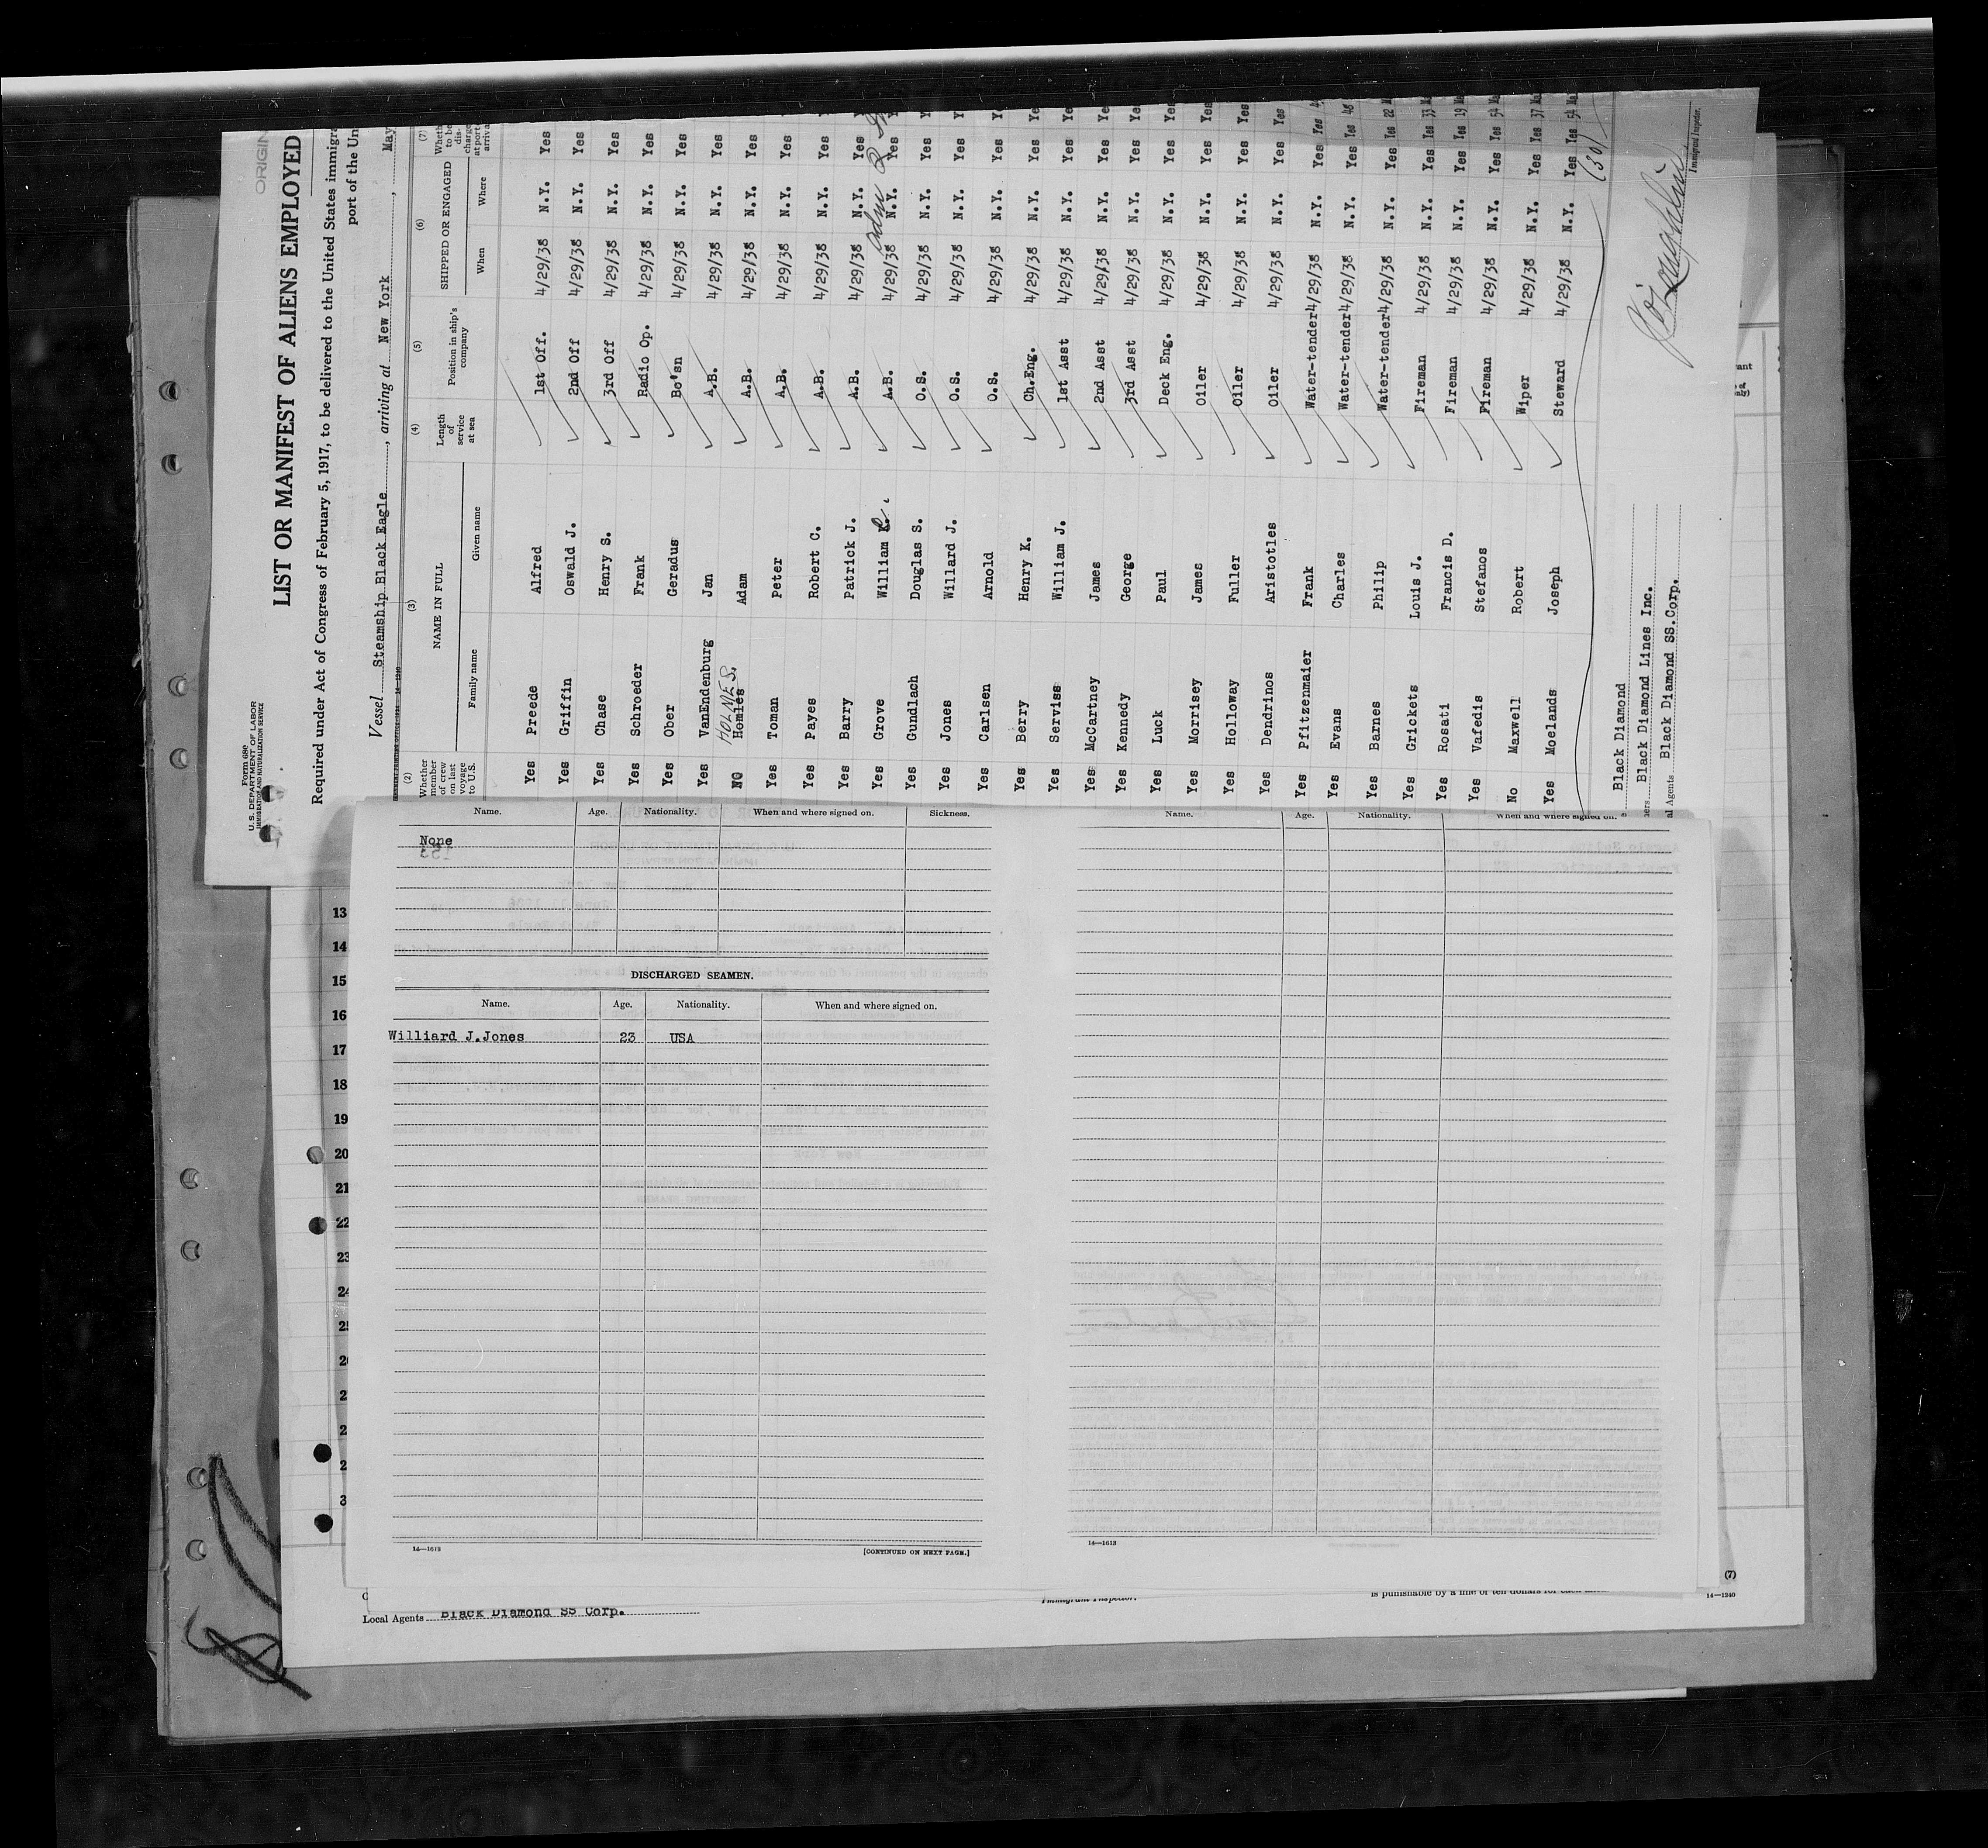 ORIGIN
Form 689
U. S. DEPARTMENT OF LABOR
IMMIGRATION AND NATURALIZATION SERVICE
LIST OR MANIFEST OF ALIENS EMPLOYED
Required under Act of Congress of February 5, 1917, to be delivered to the United States immigra
port of the Un
Vessel Steamship Black Eagle, arriving at New York, May
(2) (3) (4) (5) (6) (7)
Whether member of crew on last voyage to U.S. NAME IN FULL Length of service at sea Position in ship's company SHIPPED OR ENGAGED Wheth to be dis- charge at port arriva
Family name Given name When Where
Yes Preede Alfred 1st Off. 4/29/38 N.Y. Yes
Yes Griffin Oswald J. 2nd Off 4/29/38 N.Y. Yes
Yes Chase Henry S. 3rd Off 4/29/38 N.Y. Yes
Yes Schroeder Frank Radio Op. 4/29/38 N.Y. Yes
Yes Ober Geradus Bo'sn 4/29/38 N.Y. Yes
Yes VanEndenburg Jan A.B. 4/29/38 N.Y. Yes
HOLMES.
NO Homles Adam A.B. 4/29/38 N.Y. Yes
Yes Toman Peter A.B. 4/29/38 N.Y. Yes
Yes Payes Robert C. A.B. 4/29/38 N.Y. Yes
Yes Barry Patrick J. A.B. 4/29/38 N.Y. Yes
Yes Grove William A.B. 4/29/38 N.Y. Yes
Yes Gundlach Douglas S. O.S. 4/29/38 N.Y. Yes Y
Yes Jones Willard J. O.S. 4/29/38 N.Y. Yes Y
Yes Carlsen Arnold O.S. 4/29/38 N.Y. Yes Y
Yes Berry Henry K. Ch.Eng. 4/29/38 N.Y. Yes Ye
Yes Serviss William J. 1st Asst 4/29/38 N.Y. Yes Ye
Yes McCartney James 2nd Asst 4/29/38 N.Y. Yes Ye
Yes Kennedy George 3rd Asst 4/29/38 N.Y. Yes Ye
Yes Luck Paul Deck Eng. 4/29/38 N.Y. Yes Ye
Yes Morrisey James Oiler 4/29/38 N.Y. Yes Ye
Yes Holloway Fuller Oiler 4/29/38 N.Y. Yes Yes
Yes Dendrinos Aristotles Oiler 4/29/38 N.Y. Yes Yes
Yes Pfitzenmaier Frank Water-tender 4/29/38 N.Y. Yes Yes 4
Yes Evans Charles Water-tender 4/29/38 N.Y. Yes Yes 48
Yes Barnes Philip Water-tender 4/29/38 N.Y. Yes Yes 22 M
Yes Grickets Louis J. Fireman 4/29/38 N.Y. Yes Yes 33 Ma
Yes Rosati Francis D. Fireman 4/29/38 N.Y. Yes Yes 19 Ma
Yes Vafedis Stefanos Fireman 4/29/38 N.Y. Yes Yes 54 Ma
No Maxwell Robert Wiper 4/29/38 N.Y. Yes Yes 37 Ma
Yes Moelands Joseph Steward 4/29/38 N.Y. Yes Yes 54 Ma
(30)
Black Diamond
ers Black Diamond Lines Inc.
al Agents Black Diamond SS.Corp.
Immigrant Inspector.
Name. Age. Nationality. When and where signed on. Sickness.
None
DISCHARGED SEAMEN.
Name. Age. Nationality. When and where signed on.
Williard J.Jones 23 USA
14—1613
[CONTINUED ON NEXT PAGE.]
Name. Age. Nationality. When and where signed on.
14—1613
13
14
15
16
17
18
19
20
21
22
23
24
Local Agents Black Diamond SS Corp.
Immigrant Inspector.
is punishable by a fine of ten dollars for each
(7)
14—1240